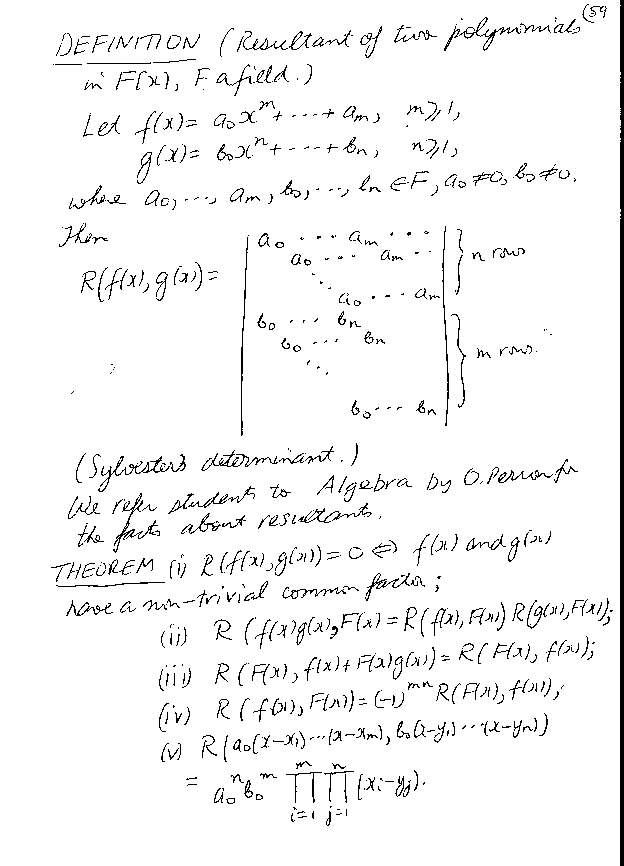 59
DEFINITION (Resultant of two polynomials
in F[x], F a field.)
Let f(x) = a₀xᵐ + ··· + aₘ, m ≥ 1,
g(x) = b₀xⁿ + ··· + bₙ, n ≥ 1,
where a₀, ···, aₘ, b₀, ···, bₙ ∈ F, a₀ ≠ 0, b₀ ≠ 0.
Then
R(f(x), g(x)) =
a₀ ··· aₘ ···
a₀ ··· aₘ ··
⋱
a₀ ··· aₘ
} n rows
b₀ ··· bₙ
b₀ ··· bₙ
⋱
b₀ ··· bₙ
} m rows.
(Sylvester's determinant.)
We refer students to Algebra by O. Perron for
the facts about resultants.
THEOREM (i) R(f(x), g(x)) = 0 ⇔ f(x) and g(x)
have a non-trivial common factor;
(ii) R(f(x)g(x), F(x) = R(f(x), F(x)) R(g(x), F(x));
(iii) R(F(x), f(x) + F(x)g(x)) = R(F(x), f(x));
(iv) R(f(x), F(x)) = (-1)ᵐⁿ R(F(x), f(x));
(v) R(a₀(x-x₁)···(x-xₘ), b₀(x-y₁)···(x-yₙ))
= a₀ⁿ b₀ᵐ ∏ᵢ₌₁ᵐ ∏ⱼ₌₁ⁿ (xᵢ-yⱼ).